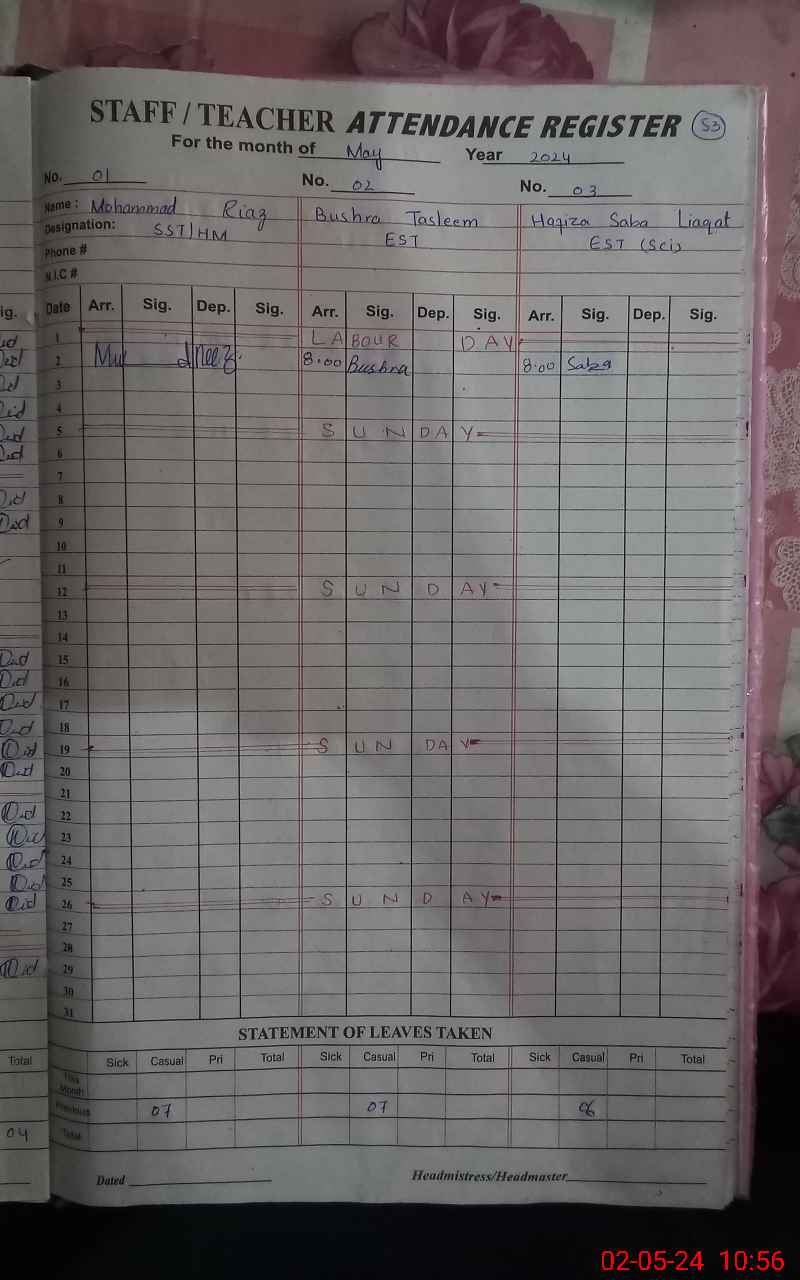 STAFF / TEACHER ATTENDANCE REGISTER 53
For the month of May Year 2024
No. 01 No. 02 No. 03
Name : Mohammad Riaz Bushra Tasleem Hafiza Saba Liaqat
Designation: SST/HM EST EST (Sci)
Phone #
N.I.C #
Date Arr. Sig. Dep. Sig. Arr. Sig. Dep. Sig. Arr. Sig. Dep. Sig.
1 LABOUR DAY
2 8:00 Bushra 8:00 Saba
3
4
5 SUNDAY
6
7
8
9
10
11
12 SUNDAY
13
14
15
16
17
18
19 SUNDAY
20
21
22
23
24
25
26 SUNDAY
27
28
29
30
31
STATEMENT OF LEAVES TAKEN
Sick Casual Pri Total Sick Casual Pri Total Sick Casual Pri Total
This Month
Previous 07 07
Total
Dated Headmistress/Headmaster
ig.
Total
04
02-05-24 10:56